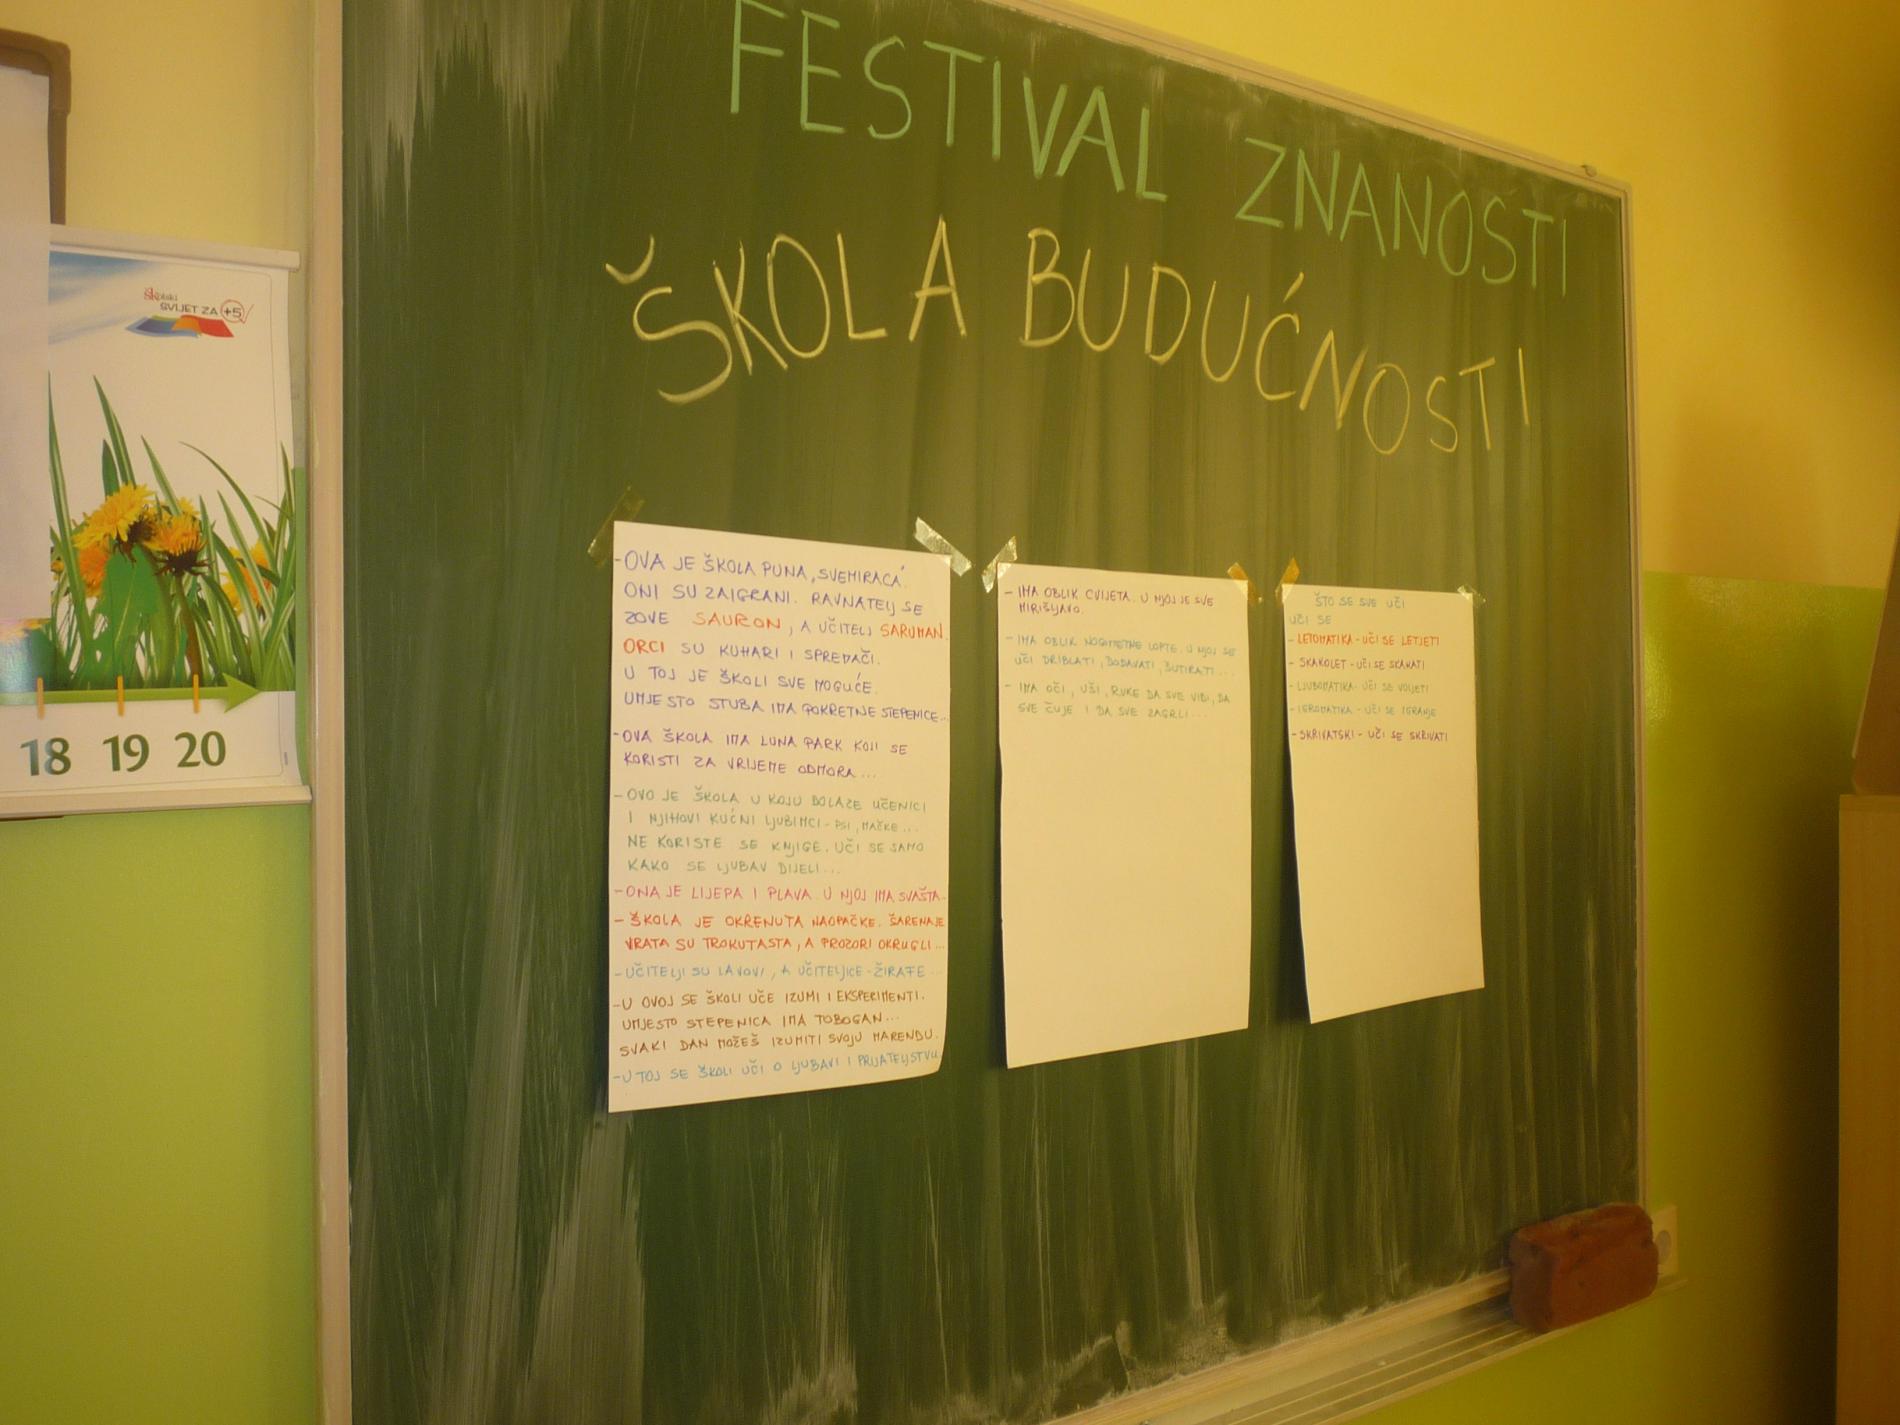 FESTIVAL ZNANOSTI
ŠKOLA BUDUĆNOSTI
školski
SVIJET ZA +5
18 19 20
- OVA JE ŠKOLA PUNA "SVEMIRACA".
ONI SU ZAIGRANI. RAVNATELJ SE
ZOVE SAURON, A UČITELJ SARUMAN.
ORCI SU KUHARI I SPREMAČI.
U TOJ JE ŠKOLI SVE MOGUĆE.
UMJESTO STUBA IMA POKRETNE STEPENICE...
- OVA ŠKOLA IMA LUNA PARK KOJI SE
KORISTI ZA VRIJEME ODMORA...
- OVO JE ŠKOLA U KOJU DOLAZE UČENICI
I NJIHOVI KUĆNI LJUBIMCI - PSI, MAČKE...
NE KORISTE SE KNJIGE. UČI SE SAMO
KAKO SE LJUBAV DIJELI...
- ONA JE LIJEPA I PLAVA. U NJOJ IMA SVAŠTA.
- ŠKOLA JE OKRENUTA NAOPAČKE. ŠARENA JE
VRATA SU TROKUTASTA, A PROZORI OKRUGLI...
- UČITELJI SU LAVOVI, A UČITELJICE - ŽIRAFE...
- U OVOJ SE ŠKOLI UČE IZUMI I EKSPERIMENTI.
UMJESTO STEPENICA IMA TOBOGAN...
SVAKI DAN MOŽEŠ IZUMITI SVOJU MARENDU.
- U TOJ SE ŠKOLI UČI O LJUBAVI I PRIJATELJSTVU.
- IMA OBLIK CVIJETA. U NJOJ JE SVE
MIRISLJAVO.
- IMA OBLIK NOGOMETNE LOPTE. U NJOJ SE
UČI DRIBLATI, DODAVATI, ŠUTIRATI...
- IMA OČI, UŠI, RUKE DA SVE VIDI, DA
SVE ČUJE I DA SVE ZAGRLI...
ŠTO SE SVE UČI
UČI SE
- LETOMATIKA - UČI SE LETJETI
- SKAKOLET - UČI SE SKAKATI
- LJUBOMATIKA - UČI SE VOLJETI
- IGROMATIKA - UČI SE IGRANJE
- SKRIVATSKI - UČI SE SKRIVATI